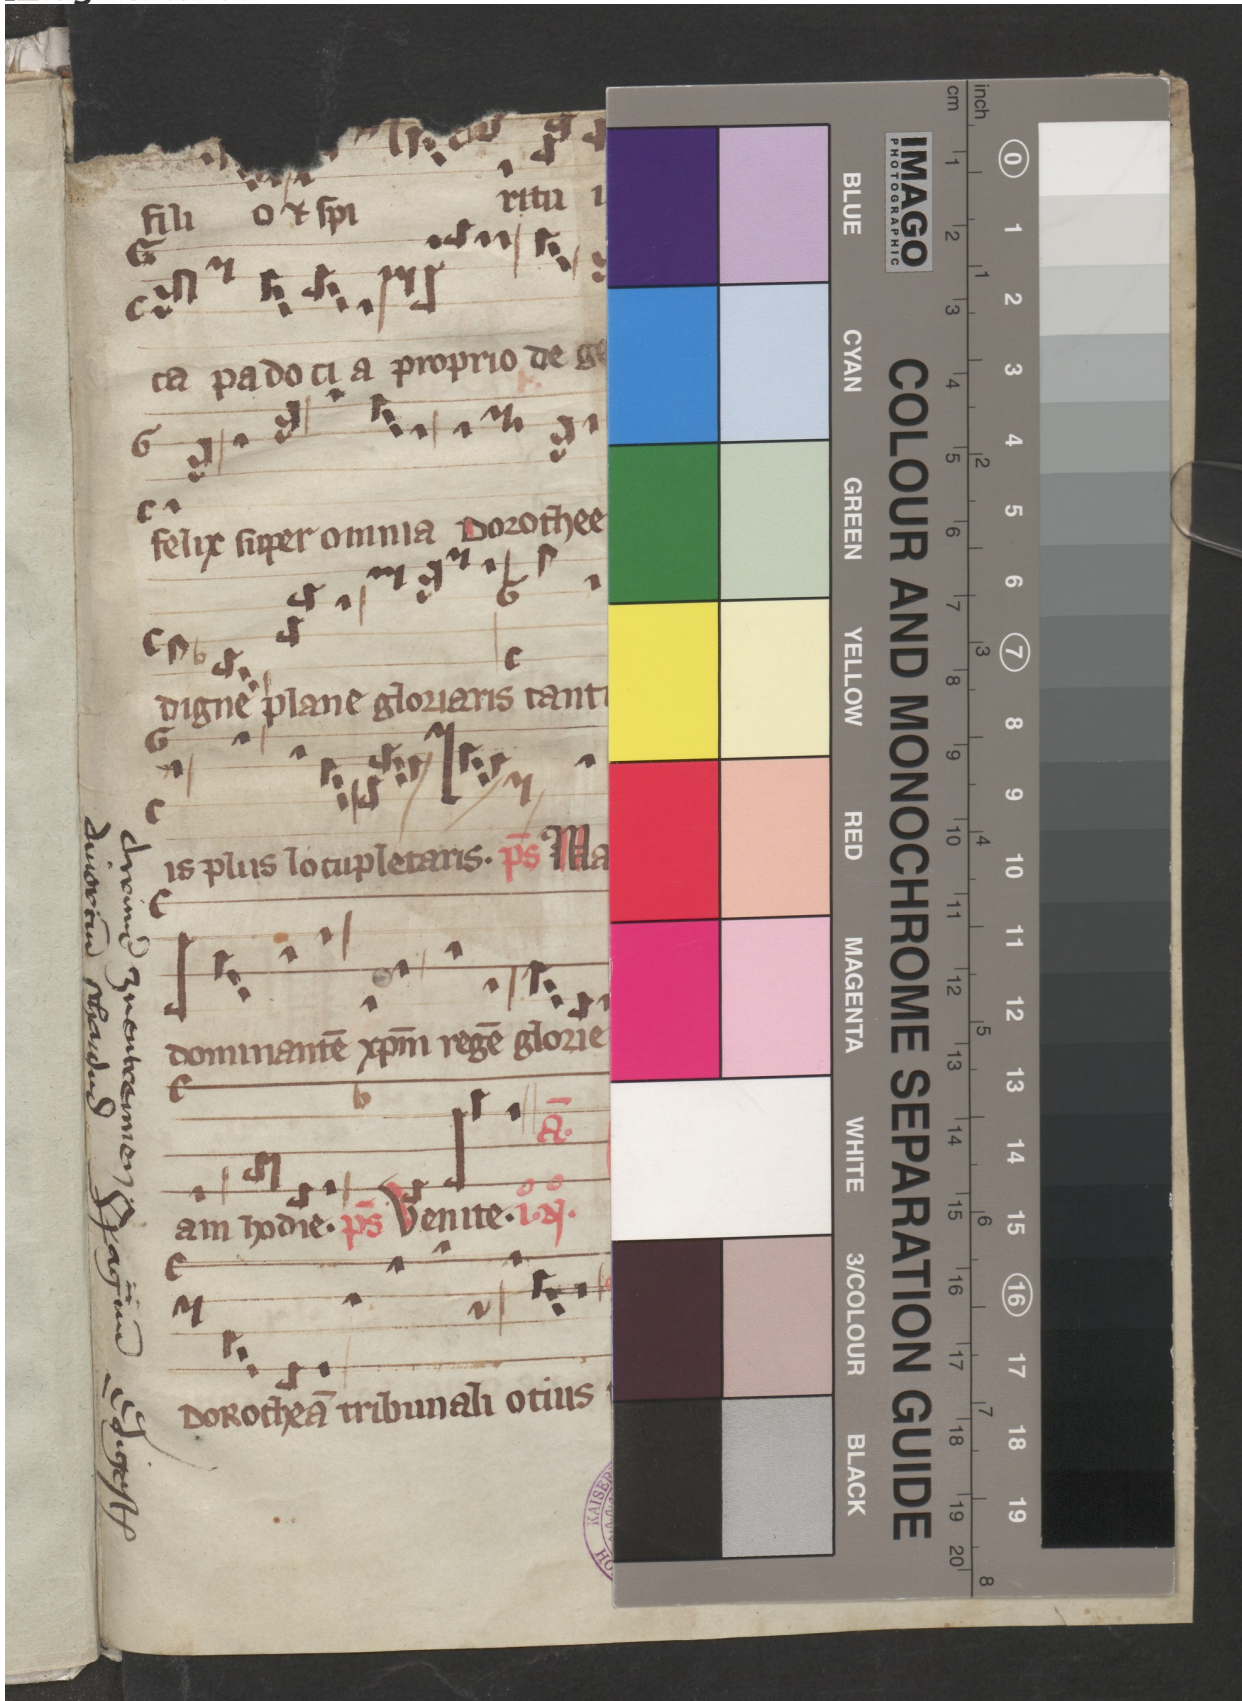 fili o ⁊ spi ritu i
ca pa do ci a proprio de ge
felix super omnia Dorothee
digne plane gloriaris tanti
is plus locupletaris. p̄s Ma
dominantē xp̄m regē glorie
ā.
am hodie. p̄s Venite. i. ij.
DOROTHEĀ tribunali otius
KAISER
HO
inch
cm
IMAGO
PHOTOGRAPHIC
COLOUR AND MONOCHROME SEPARATION GUIDE
BLUE
CYAN
GREEN
YELLOW
RED
MAGENTA
WHITE
3/COLOUR
BLACK
1 2 3 4 5 6 7 8 9 10 11 12 13 14 15 16 17 18 19 20
1 2 3 4 5 6 7 8
0 1 2 3 4 5 6 7 8 9 10 11 12 13 14 15 16 17 18 19